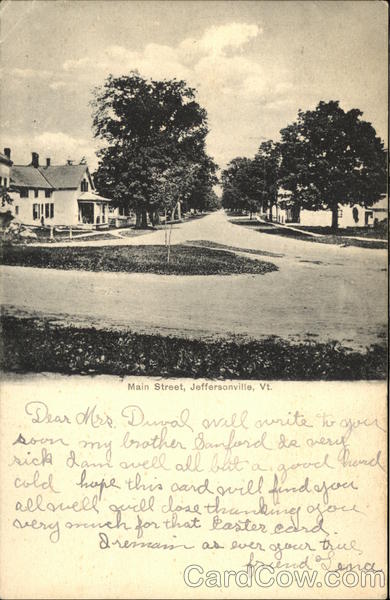 Main Street, Jeffersonville, Vt.
Dear Mrs. Duval will write to you
soon my brother Sanford is very
sick I am well all but a good hard
cold hope this card will find you
all well will close thanking you
very much for that Easter card
I remain as ever your true
friend Lena
CardCow.com